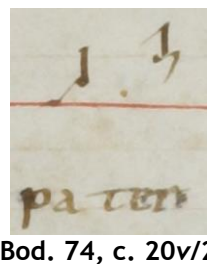 pa ter
Bod. 74, c. 20v/2